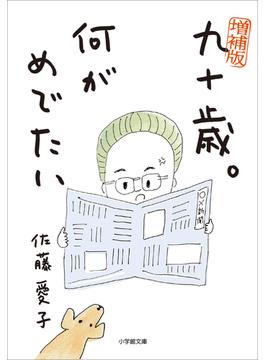 増補版
九十歳。
何が
めでたい
佐藤愛子
〇×新聞
小学館文庫